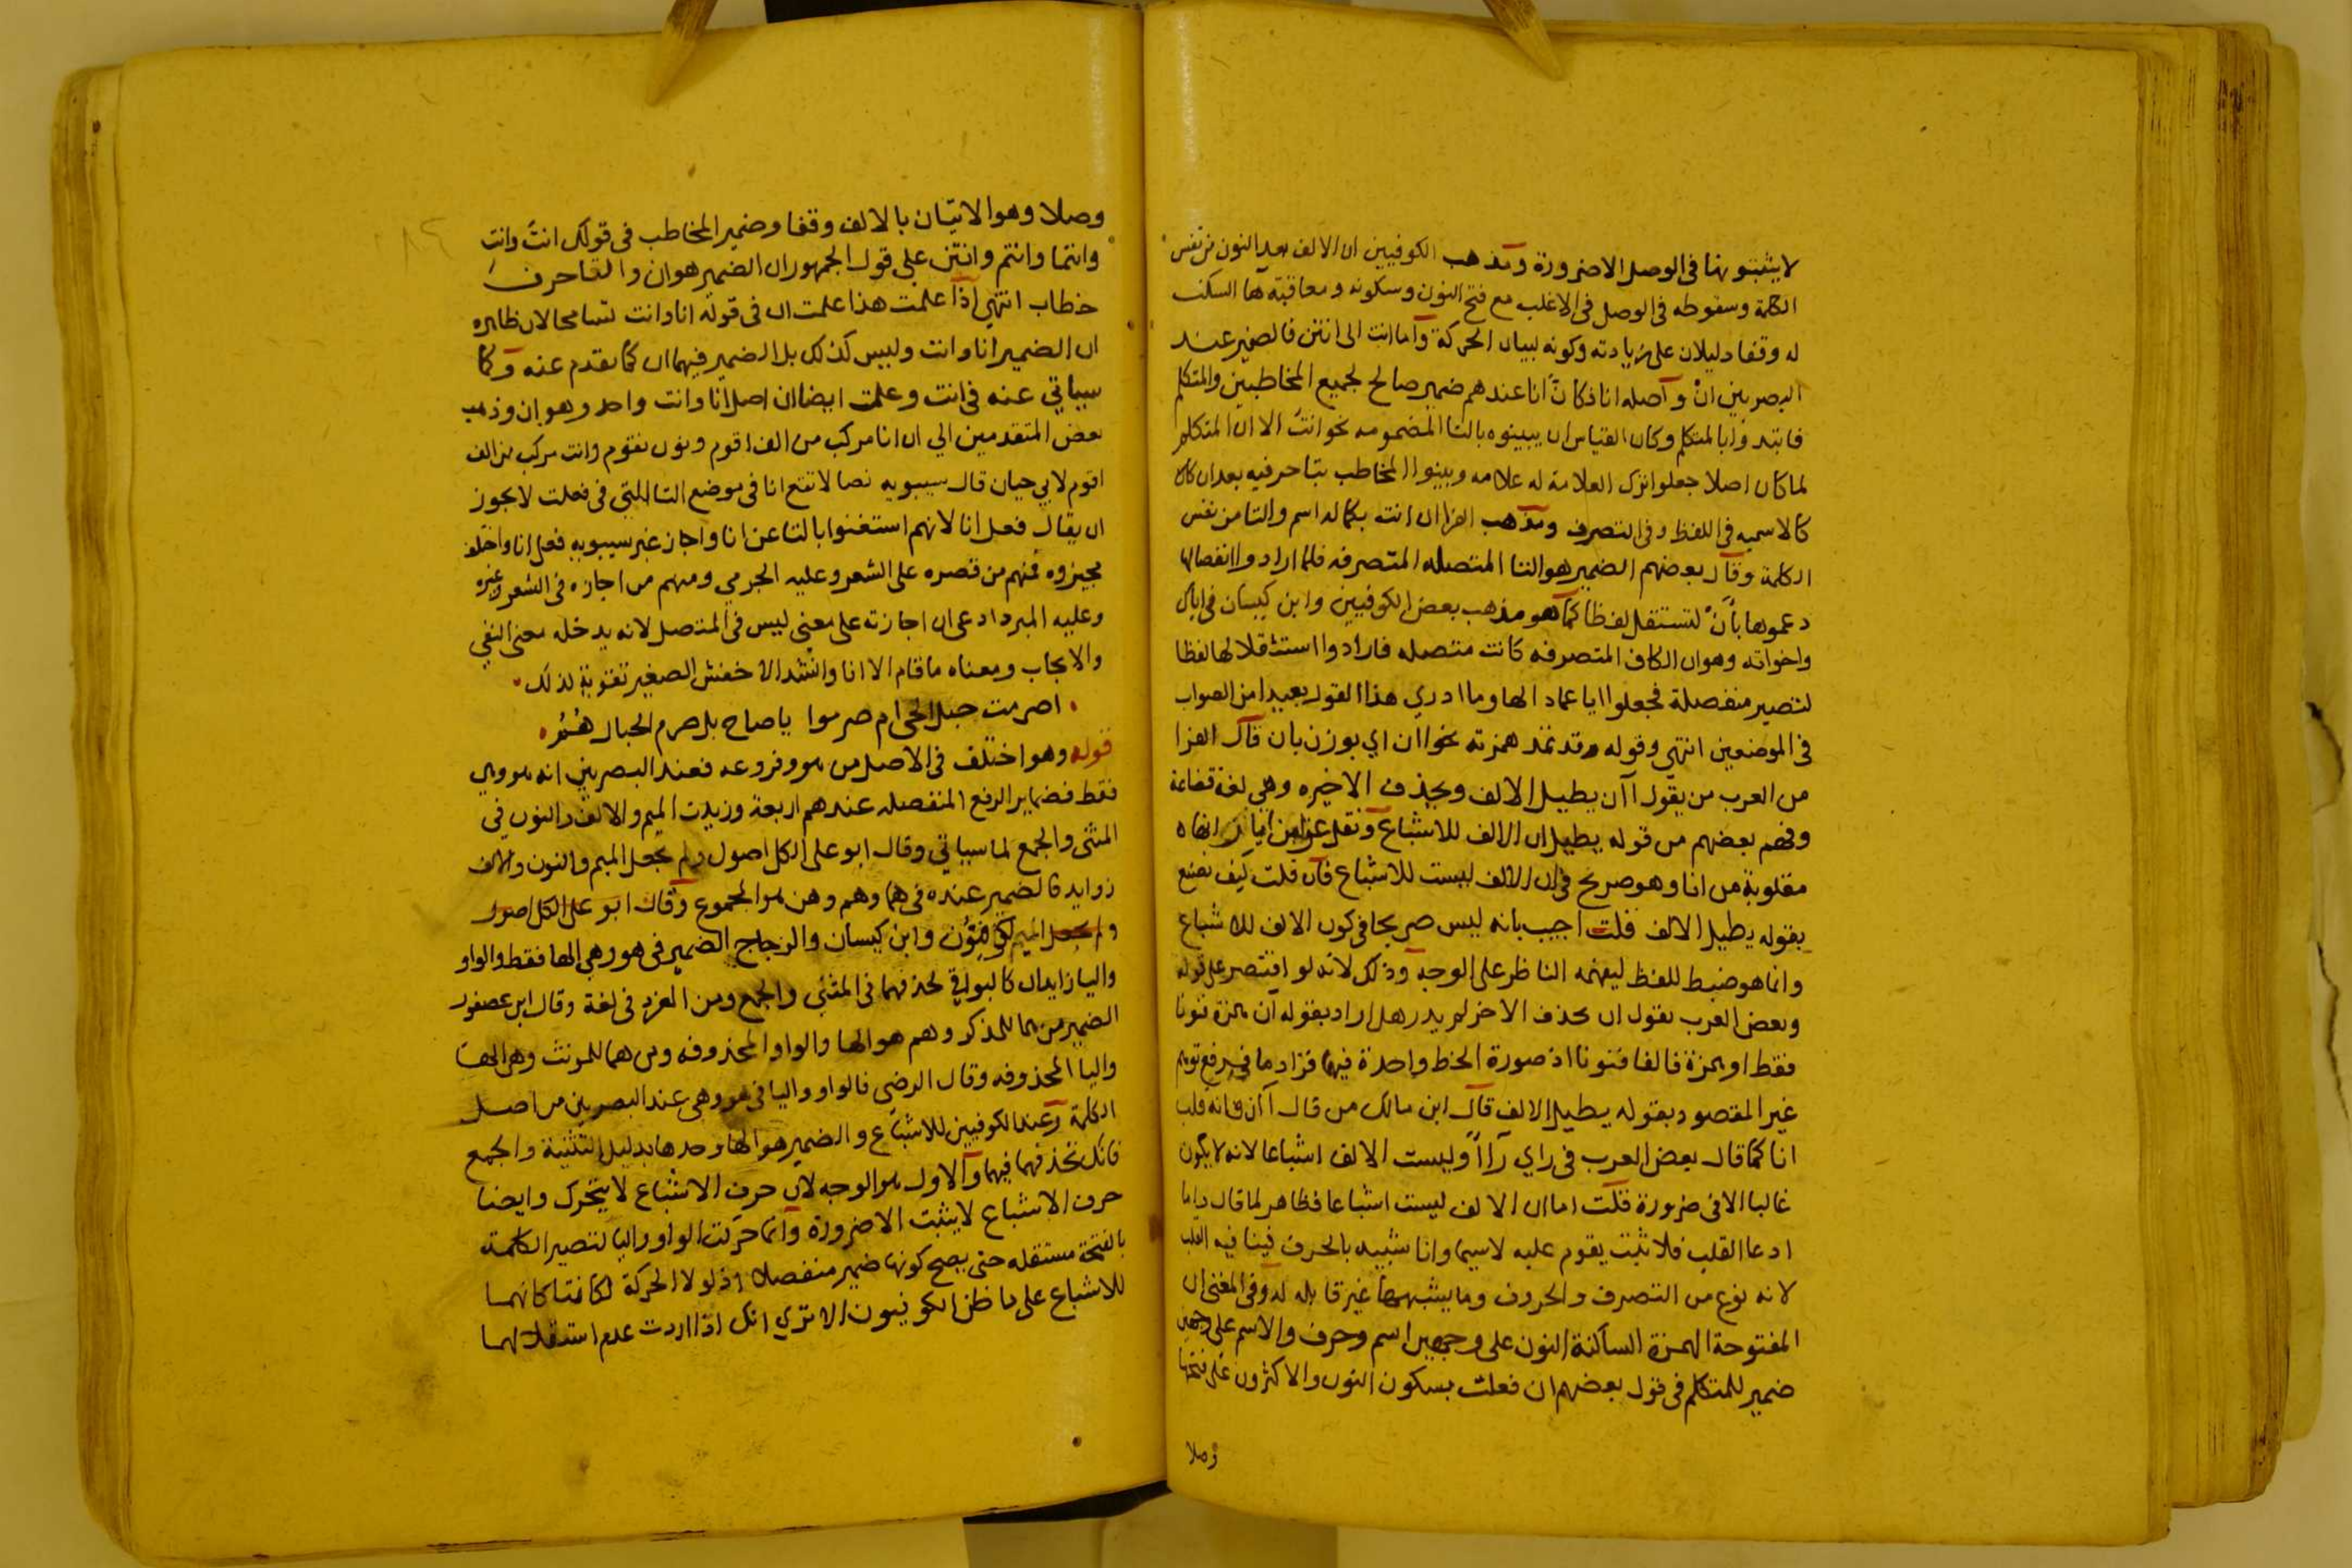 لا يثبتونها فى الوصل الا ضرورة ومذهب الكوفيين ان الالف بعد النون من نفس
الكلمة وسقوطه فى الوصل فى الاغلب مع فتح النون وسكونه ومعاقبة ها السكت
له وقفا دليلان على زيادته وكونه لبيان الحركة واما انت الى انتن فالضمير عند
البصريين ان وآصله انا فكانّ انا عندهم ضمير صالح لجميع المخاطبين والمتكلم
فابتدوا بالمتكلم وكان القياس ان يبينوه بالتا المضمومه نحو انتُ الا ان المتكلم
لما كان اصلا جعلوا ترك العلامة له علامه وبينوا المخاطب بتا حرفيه بعد ان كان
كالاسميه فى اللفظ وفى التصرف ومذهب الفرا ان انت بكماله اسم والتا من نفس
الكلمة وقال بعضهم الضمير هو التا المتصله المتصرفه فلما ارادوا انفصالها
دعموها بأنْ لتستقل لفظا كما هو مذهب بعض الكوفيين وابن كيسان فى اياك
واخواته وهو ان الكاف المتصرفه كانت متصله فارادوا استثقلالها لفظا
لتصير منفصلة فجعلوا ايا عماد الها وما ادري هذا القول بعيدا من الصواب
فى الموضعين انتهي وقوله وقد تمد همزته نحو اان اي بوزن بان قال الفرا
من العرب من يقول اآن يطيل الالف ويحذف الاخيره وهي لغة قضاعة
وفهم بعضهم من قوله يطيل ان الالف للاشباع ونقل عن ابن اياز انها
مقلوبة من انا وهو صريح فى ان الالف ليست للاشباع فآن قلت كيف نصنع
بقوله يطيل الالف قلت اجيب بانه ليس صريحا فى كون الالف للاشباع
وانما هو ضبط للفظ ليفهمه الناظر على الوجه وذلك لانه لو اقتصر على قوله
وبعض العرب يقول ان بحذف الاخر لم يدر هل اراد بقوله ان همزة فنونا
فقط او همزة فالفا فنونا اذ صورة الخط واحدة فيها فزاد ما فيه رفع توهم
غير المقصود بقوله يطيل الالف قال ابن مالك من قال اآن فانه قلب
انا كما قال بعض العرب فى راي رآاً وليست الالف اشباعا لانه لا يكون
غالبا الا فى ضرورة قلت اما ان الالف ليست اشباعا فظاهر لما قال واما
ادعا القلب فلا ثبت يقوم عليه لاسيما وانا شبيه بالحرف فينافيه القلب
لانه نوع من التصرف والحروف وما يشبهها غير قابله له وفى المغني ان
المفتوحة الهمزة الساكنة النون على وجهين اسم وحرف والاسم على وجهين
ضمير للمتكلم فى قول بعضهم ان فعلت بسكون النون والاكثرون على فتحها
وصلا
وصلا وهو الاتيان بالالف وقفا وضمير المخاطب فى قولك انتَ وانتِ
وانتما وانتم وانتن على قول الجمهور ان الضمير هو ان والتا حرف
خطاب انتهي اذا علمت هذا علمت ان فى قوله انا وانت تسامحا لان ظاهره
ان الضمير انا وانت وليس كذلك بل الضمير فيهما ان كما تقدم عنه وكما
سياتي عنه فى انت وعلمت ايضا ان اصل انا وانت واحد وهو ان وذهب
بعض المتقدمين الي ان انا مركب من الف اقوم ونون نقوم وانت مركب من الف
اقوم لابي حيان قال سيبويه نصا لا تتع انا فى موضع التا التي فى فعلت لا يجوز
ان يقال فعل انا لانهم استغنوا بالتا عن انا واجاز غير سيبويه فعل انا واختلف
مجيزوه فمنهم من قصره على الشعر وعليه الجرمي ومنهم من اجازه فى الشعر وغيره
وعليه المبرد ادعى ان اجازته على معنى ليس فى المتصل لانه يدخله معنى النفي
والايجاب ومعناه ما قام الا انا وانشد الاخفش الصغير تقوية لذلك
اصرمت حبل الحي ام صرموا ياصاح بل صرم الحبال هُمُ
قوله وهو اختلف فى الاصل من هو وفروعه فعند البصريين انه هو وهي
فقط فضماير الرفع المنفصله عندهم اربعة وزيدت الميم والالف والنون في
المثنى والجمع لما سياتي وقال ابو على الكل اصول ولم يجعل الميم والنون والالف
زوايد فالضمير عنده فى هما وهم وهن هو المجموع وقال ابو على الكل اصول
ولم يجعل الميم الكوفيون وابن كيسان والزجاج الضمير فى هو وهي الها فقط والواو
واليا زايدان كالبواقي لحذفهما فى المثنى والجمع ومن المفرد فى لغة وقال ابن عصفور
الضمير من هما للمذكر وهم هو الها والواو المحذوفه ومن هما للمونث وهن الها
واليا المحذوفه وقال الرضى فالواو واليا فى هو وهى عند البصريين من اصل
الكلمة وعند الكوفيين للاشباع والضمير هو الها وحدها بدليل التثنية والجمع
فانك تحذفهما فيهما والاول هو الوجه لان حرف الاشباع لا يتحرك وايضا
حرف الاشباع لا يثبت الا ضرورة وانما حركت الواو واليا لتصير الكلمة
بالفتحة مستقله حتى يصح كونها ضمير منفصلا اذ لولا الحركة لكانتا كانهما
للاشباع على ما ظن الكوفيون الا تري انك اذا اردت عدم استقلالهما